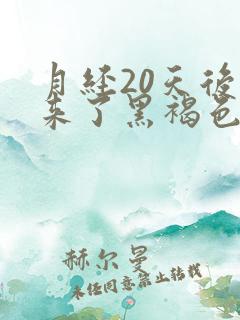 月经20天后
来了黑褐色
赫尔曼
未经同意禁止转载